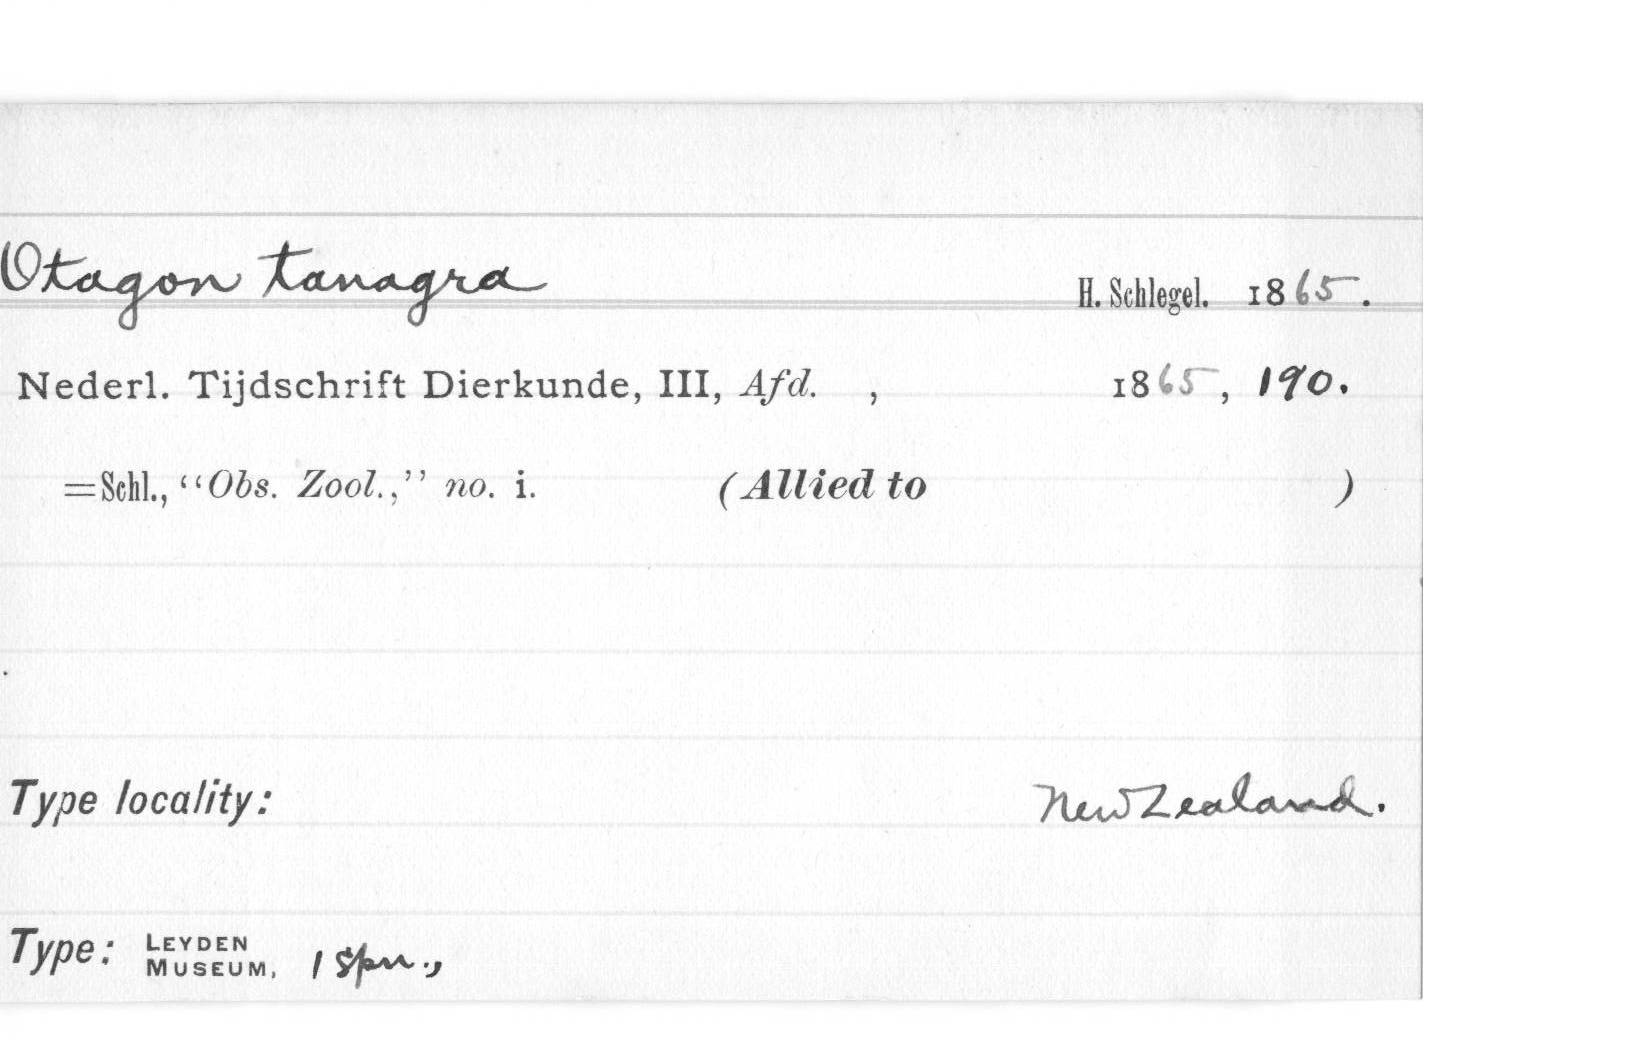 Otagon tanagra H. Schlegel. 1865.
Nederl. Tijdschrift Dierkunde, III, Afd. , 1865, 190.
=Schl., "Obs. Zool.," no. i. (Allied to )
Type locality: New Zealand.
Type: LEYDEN MUSEUM, 1 spn.,